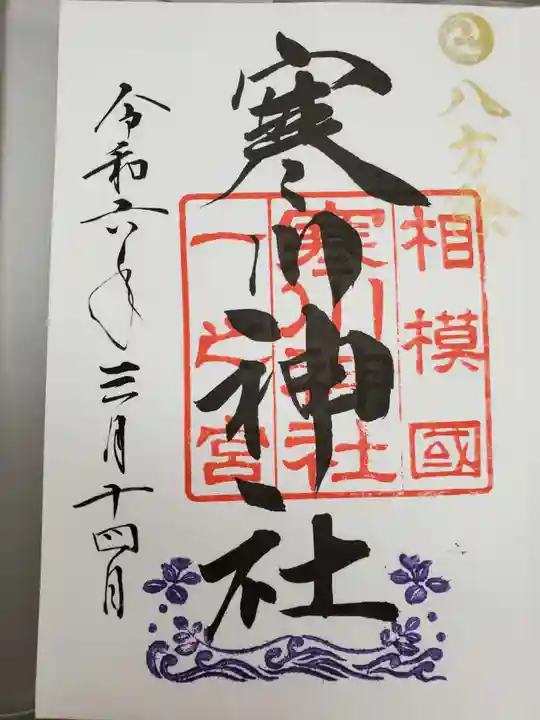 八方除
相模國
寒川神社
一之宮
寒川神社
令和六年三月十四日